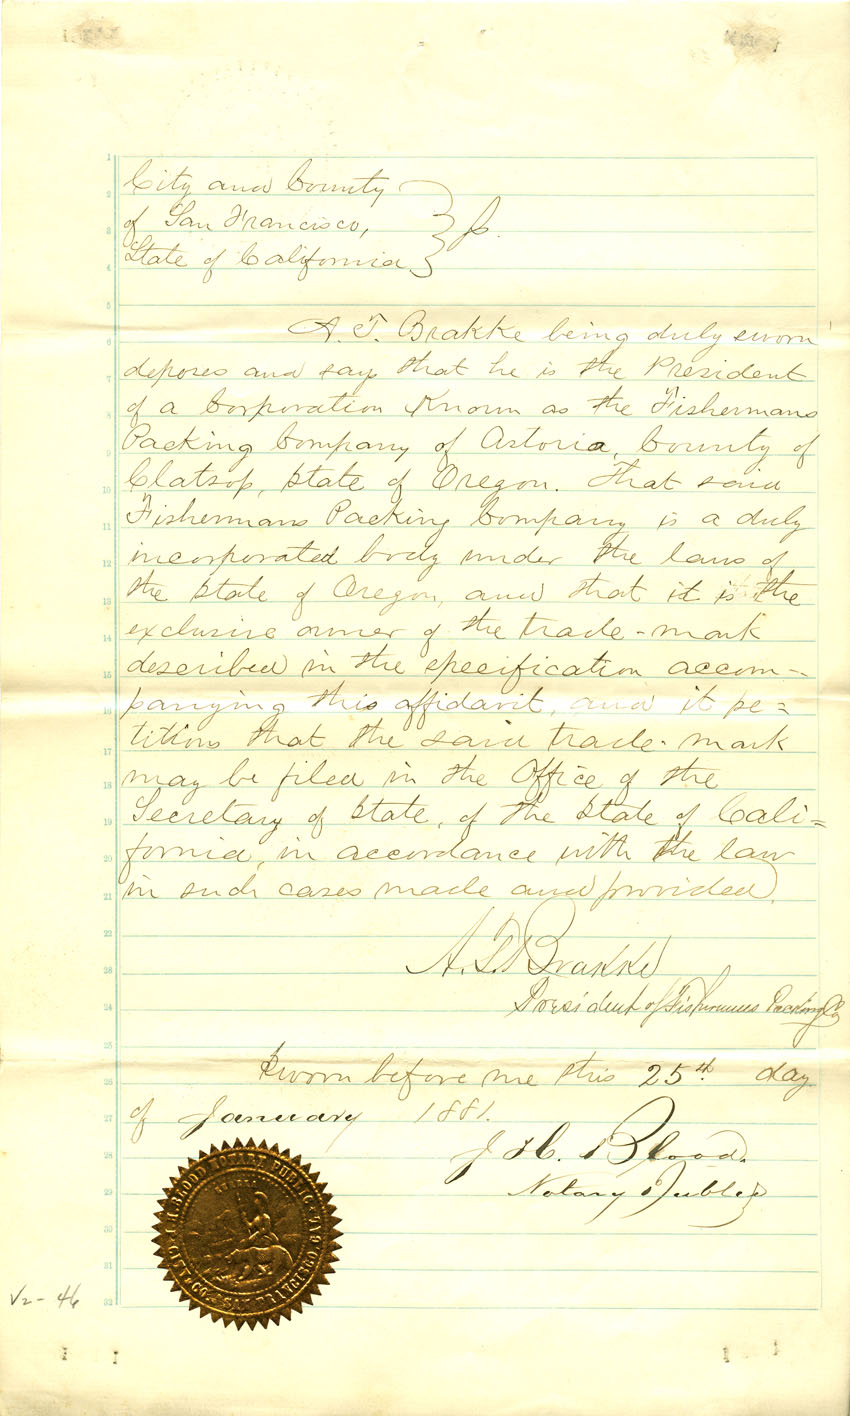 City and County
of San Francisco,
State of California } ss.
A. T. Brakke being duly sworn
deposes and says that he is the President
of a Corporation Known as the Fishermans
Packing Company of Astoria, County of
Clatsop, State of Oregon. That said
Fishermans Packing Company is a duly
incorporated body under the laws of
the State of Oregon, and that it is the
exclusive owner of the trade-mark
described in the specification accom-
panying this affidavit, and it pe=
titions that the said trade-mark
may be filed in the Office of the
Secretary of State, of the State of Cali=
fornia, in accordance with the law
in such cases made and provided.
A. T. Brakke
President of Fishermens Packing Co
Sworn before me this 25th day
of January 1881.
J. H. Blood.
Notary Public
J. H. BLOOD NOTARY PUBLIC
CITY & CO. SAN FRANCISCO, CAL.
V2-46
1
2
3
4
5
6
7
8
9
10
11
12
13
14
15
16
17
18
19
20
21
22
23
24
25
26
27
28
29
30
31
32